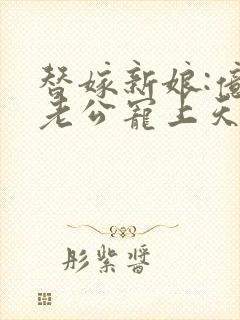 替嫁新娘:億
老公寵上天
彤紫醬